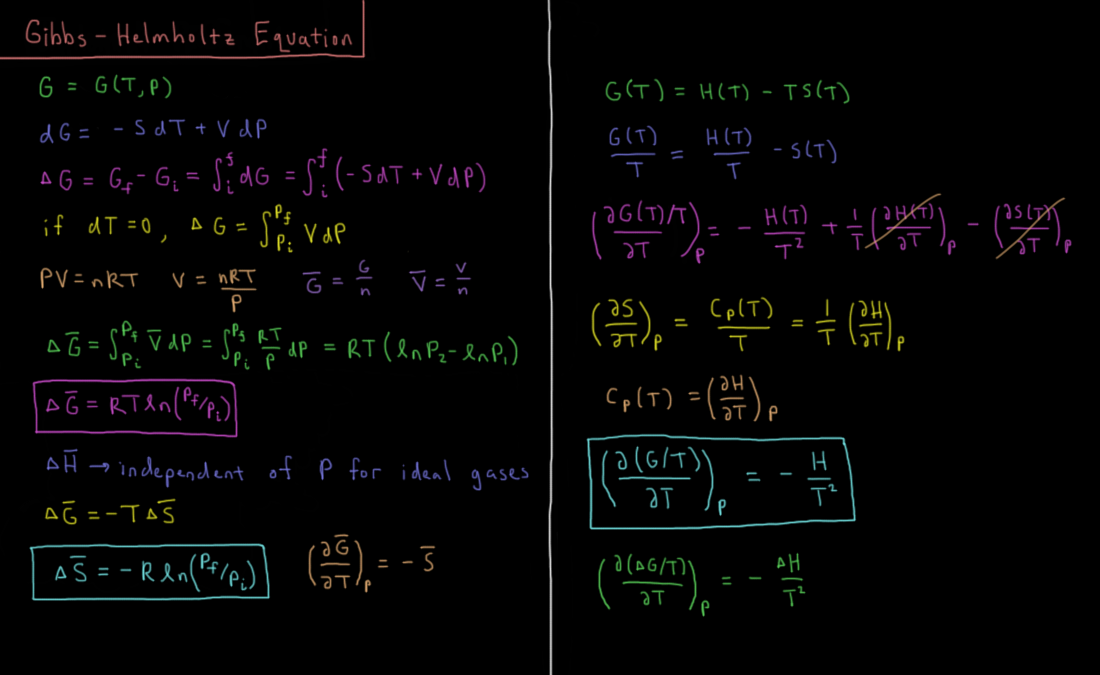 Gibbs - Helmholtz Equation
G = G(T,P)
dG = -SdT + VdP
ΔG = G_f - G_i = ∫_i^f dG = ∫_i^f (-SdT + VdP)
if dT = 0, ΔG = ∫_{P_i}^{P_f} VdP
PV = nRT V = nRT/P G̅ = G/n V̅ = V/n
ΔG̅ = ∫_{P_i}^{P_f} V̅dP = ∫_{P_i}^{P_f} RT/P dP = RT(lnP₂ - lnP₁)
ΔG̅ = RT ln(P_f/P_i)
ΔH̅ → independent of P for ideal gases
ΔG̅ = -TΔS̅
ΔS̅ = -R ln(P_f/P_i) (∂G̅/∂T)_P = -S̅
G(T) = H(T) - TS(T)
G(T)/T = H(T)/T - S(T)
(∂G(T)/T / ∂T)_P = - H(T)/T² + 1/T (∂H(T)/∂T)_P - (∂S(T)/∂T)_P
(∂S/∂T)_P = C_P(T)/T = 1/T (∂H/∂T)_P
C_P(T) = (∂H/∂T)_P
(∂(G/T)/∂T)_P = - H/T²
(∂(ΔG/T)/∂T)_P = - ΔH/T²